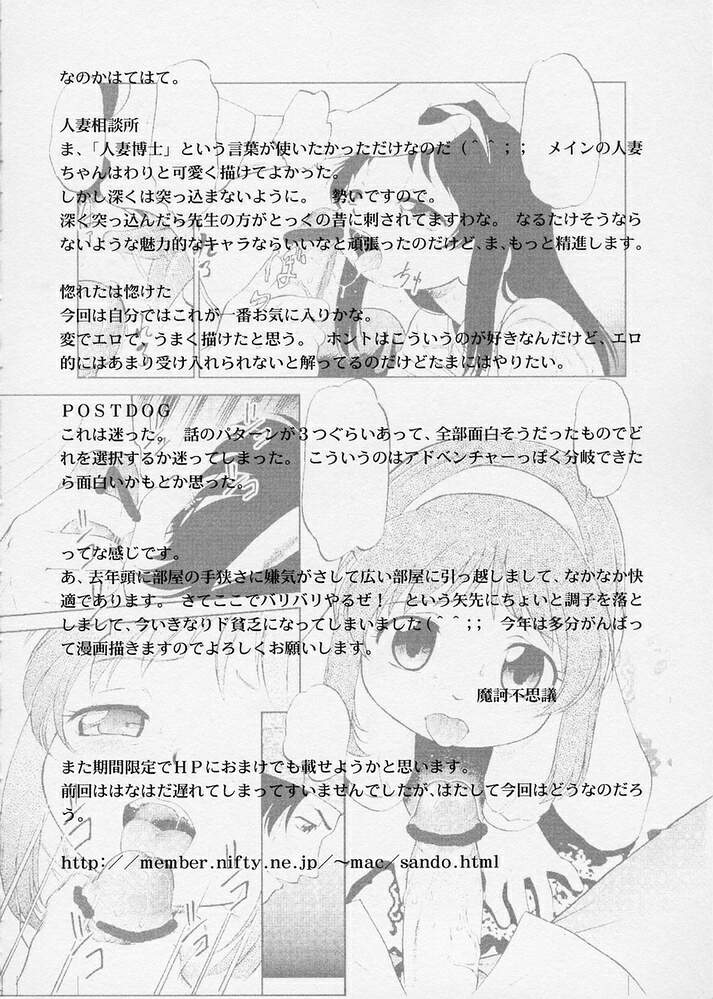 なのかはてはて。
人妻相談所
ま、「人妻博士」という言葉が使いたかっただけなのだ（＾＾；；　メインの人妻
ちゃんはわりと可愛く描けてよかった。
しかし深くは突っ込まないように。　勢いですので。
深く突っ込んだら先生の方がとっくの昔に刺されてますわな。　なるたけそうなら
ないような魅力的なキャラならいいなと頑張ったのだけど、ま、もっと精進します。
惚れたは惚けた
今回は自分ではこれが一番お気に入りかな。
変でエロで、うまく描けたと思う。　ホントはこういうのが好きなんだけど、エロ
的にはあまり受け入れられないと解ってるのだけどたまにはやりたい。
ＰＯＳＴＤＯＧ
これは迷った。　話のパターンが３つぐらいあって、全部面白そうだったものでど
れを選択するか迷ってしまった。　こういうのはアドベンチャーっぽく分岐できた
ら面白いかもとか思った。
ってな感じです。
あ、去年頭に部屋の手狭さに嫌気がさして広い部屋に引っ越しまして、なかなか快
適であります。　さてここでバリバリやるぜ！　という矢先にちょいと調子を落と
しまして、今いきなりド貧乏になってしまいました（＾＾；；　今年は多分がんばっ
て漫画描きますのでよろしくお願いします。
魔訶不思議
また期間限定でＨＰにおまけでも載せようかと思います。
前回ははなはだ遅れてしまってすいませんでしたが、はたして今回はどうなのだろ
う。
http://member.nifty.ne.jp/～mac/sando.html